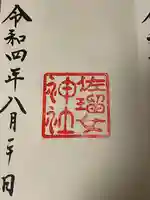 佐瑠女
神社
令和四年八月 日